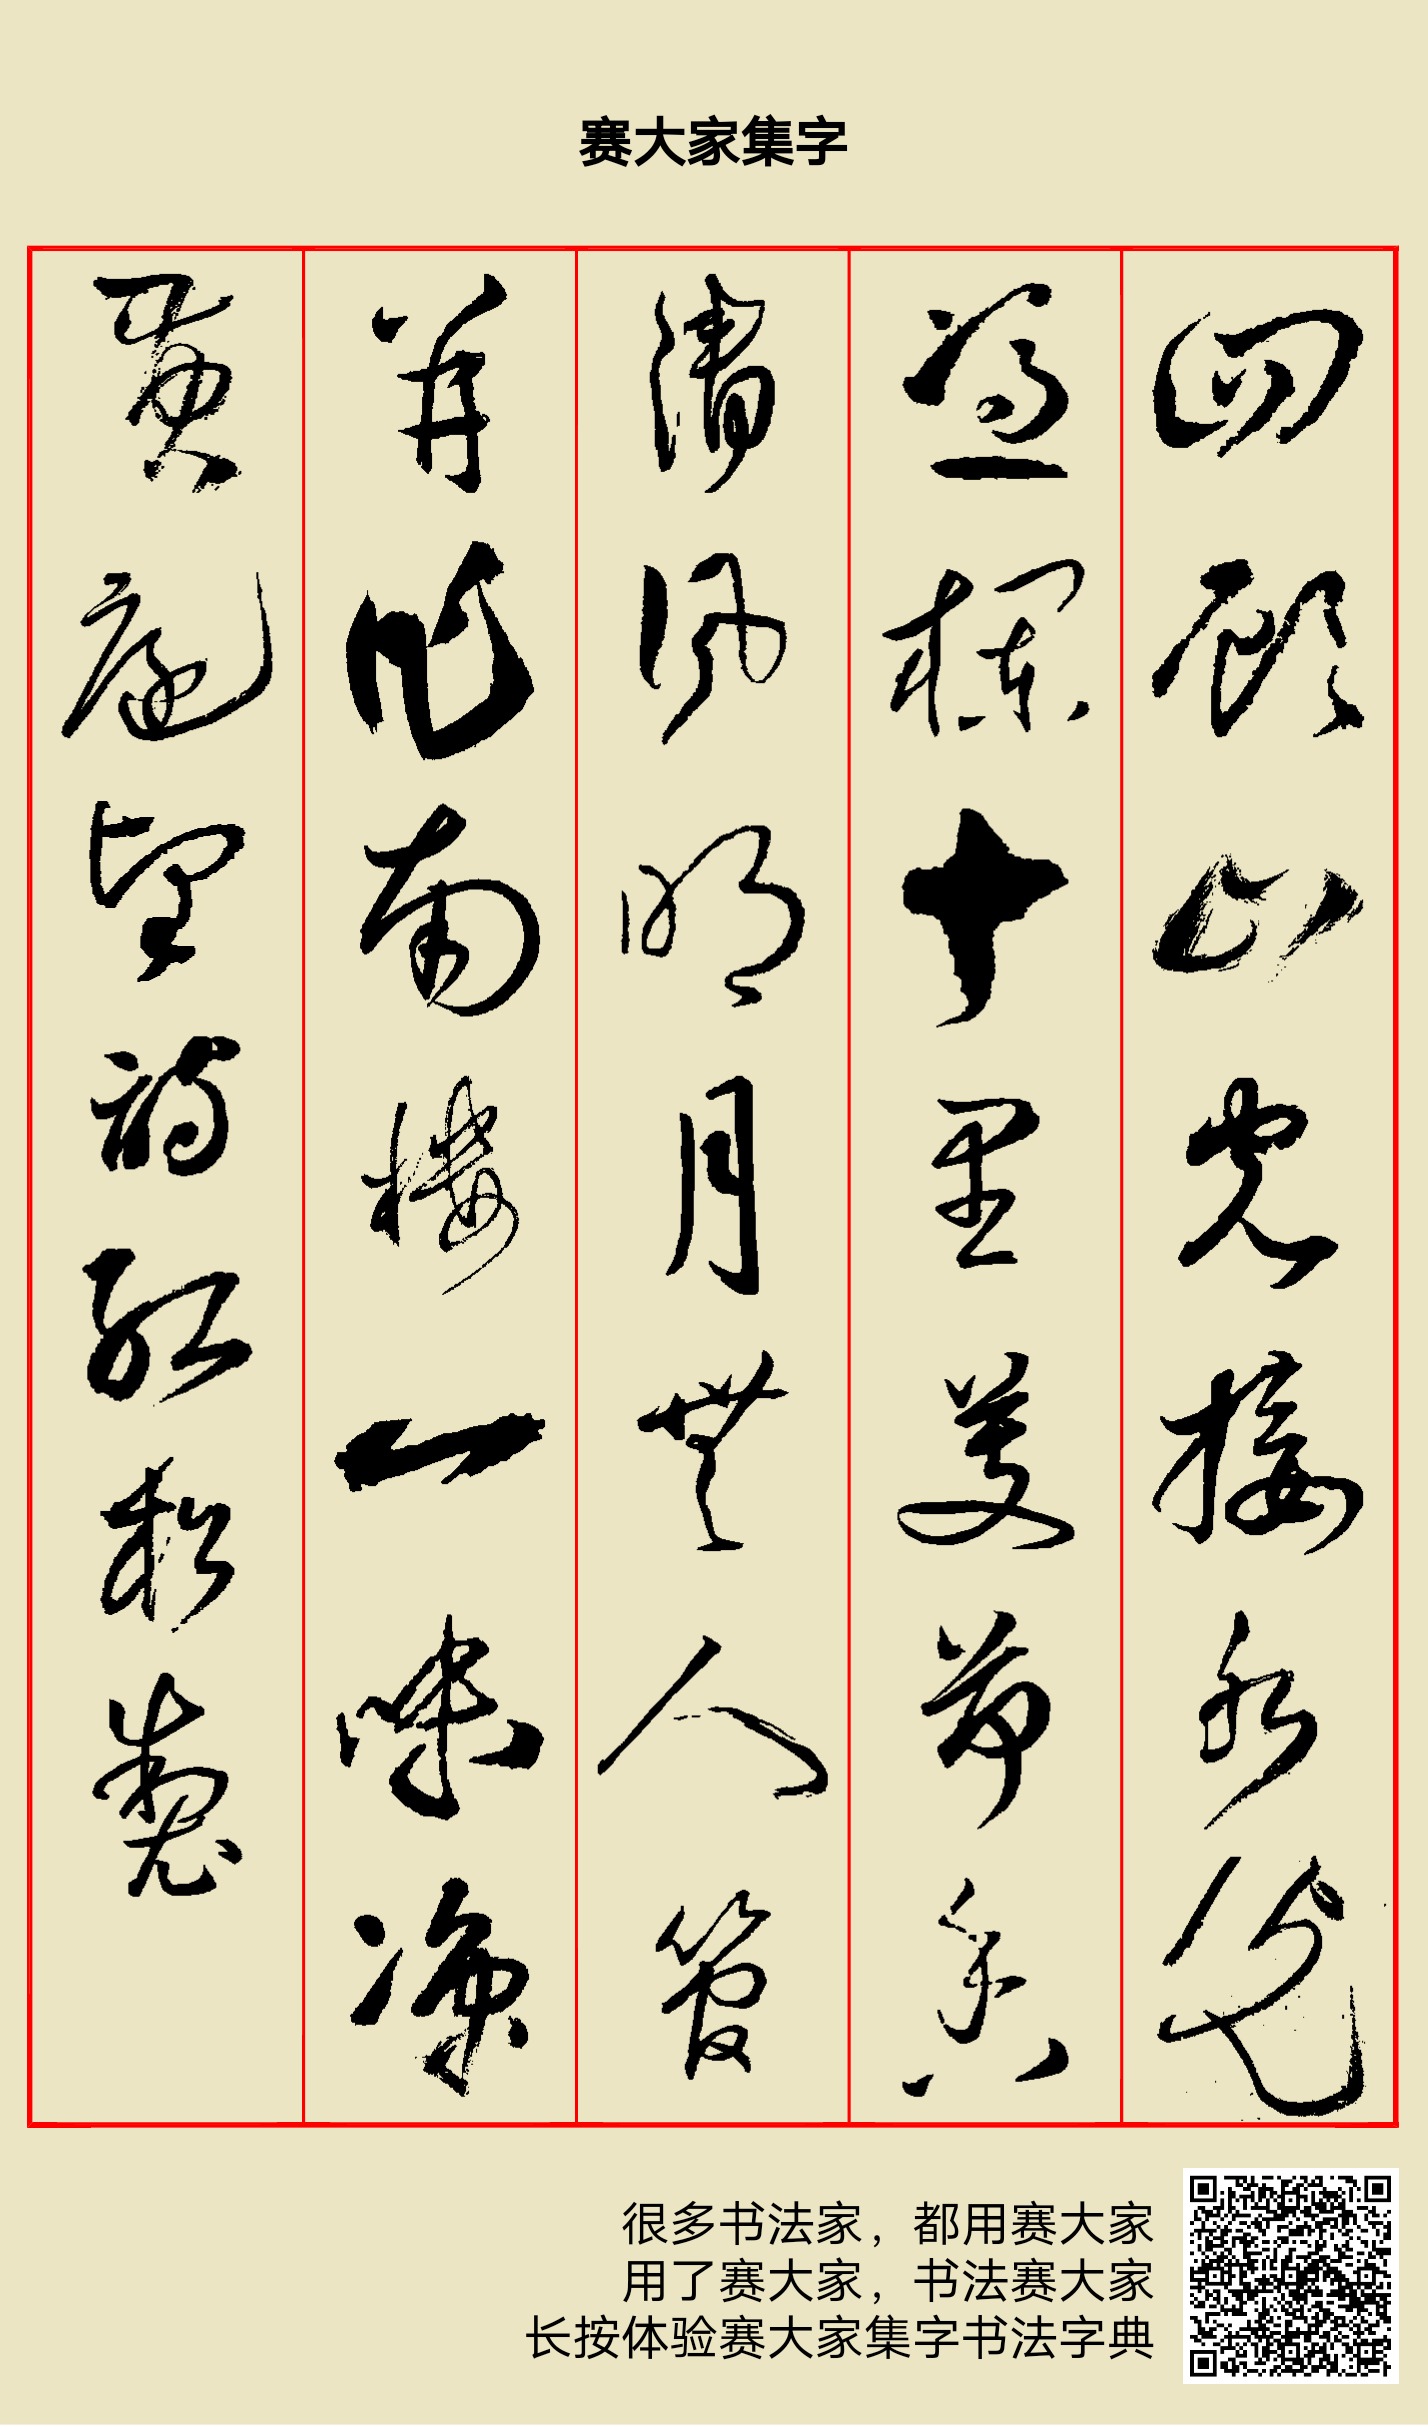 赛大家集字
四顾山光接水光
凭栏十里芰荷香
清风明月无人管
并作南楼一味凉
黄庭坚诗 红松制
很多书法家，都用赛大家
用了赛大家，书法赛大家
长按体验赛大家集字书法字典